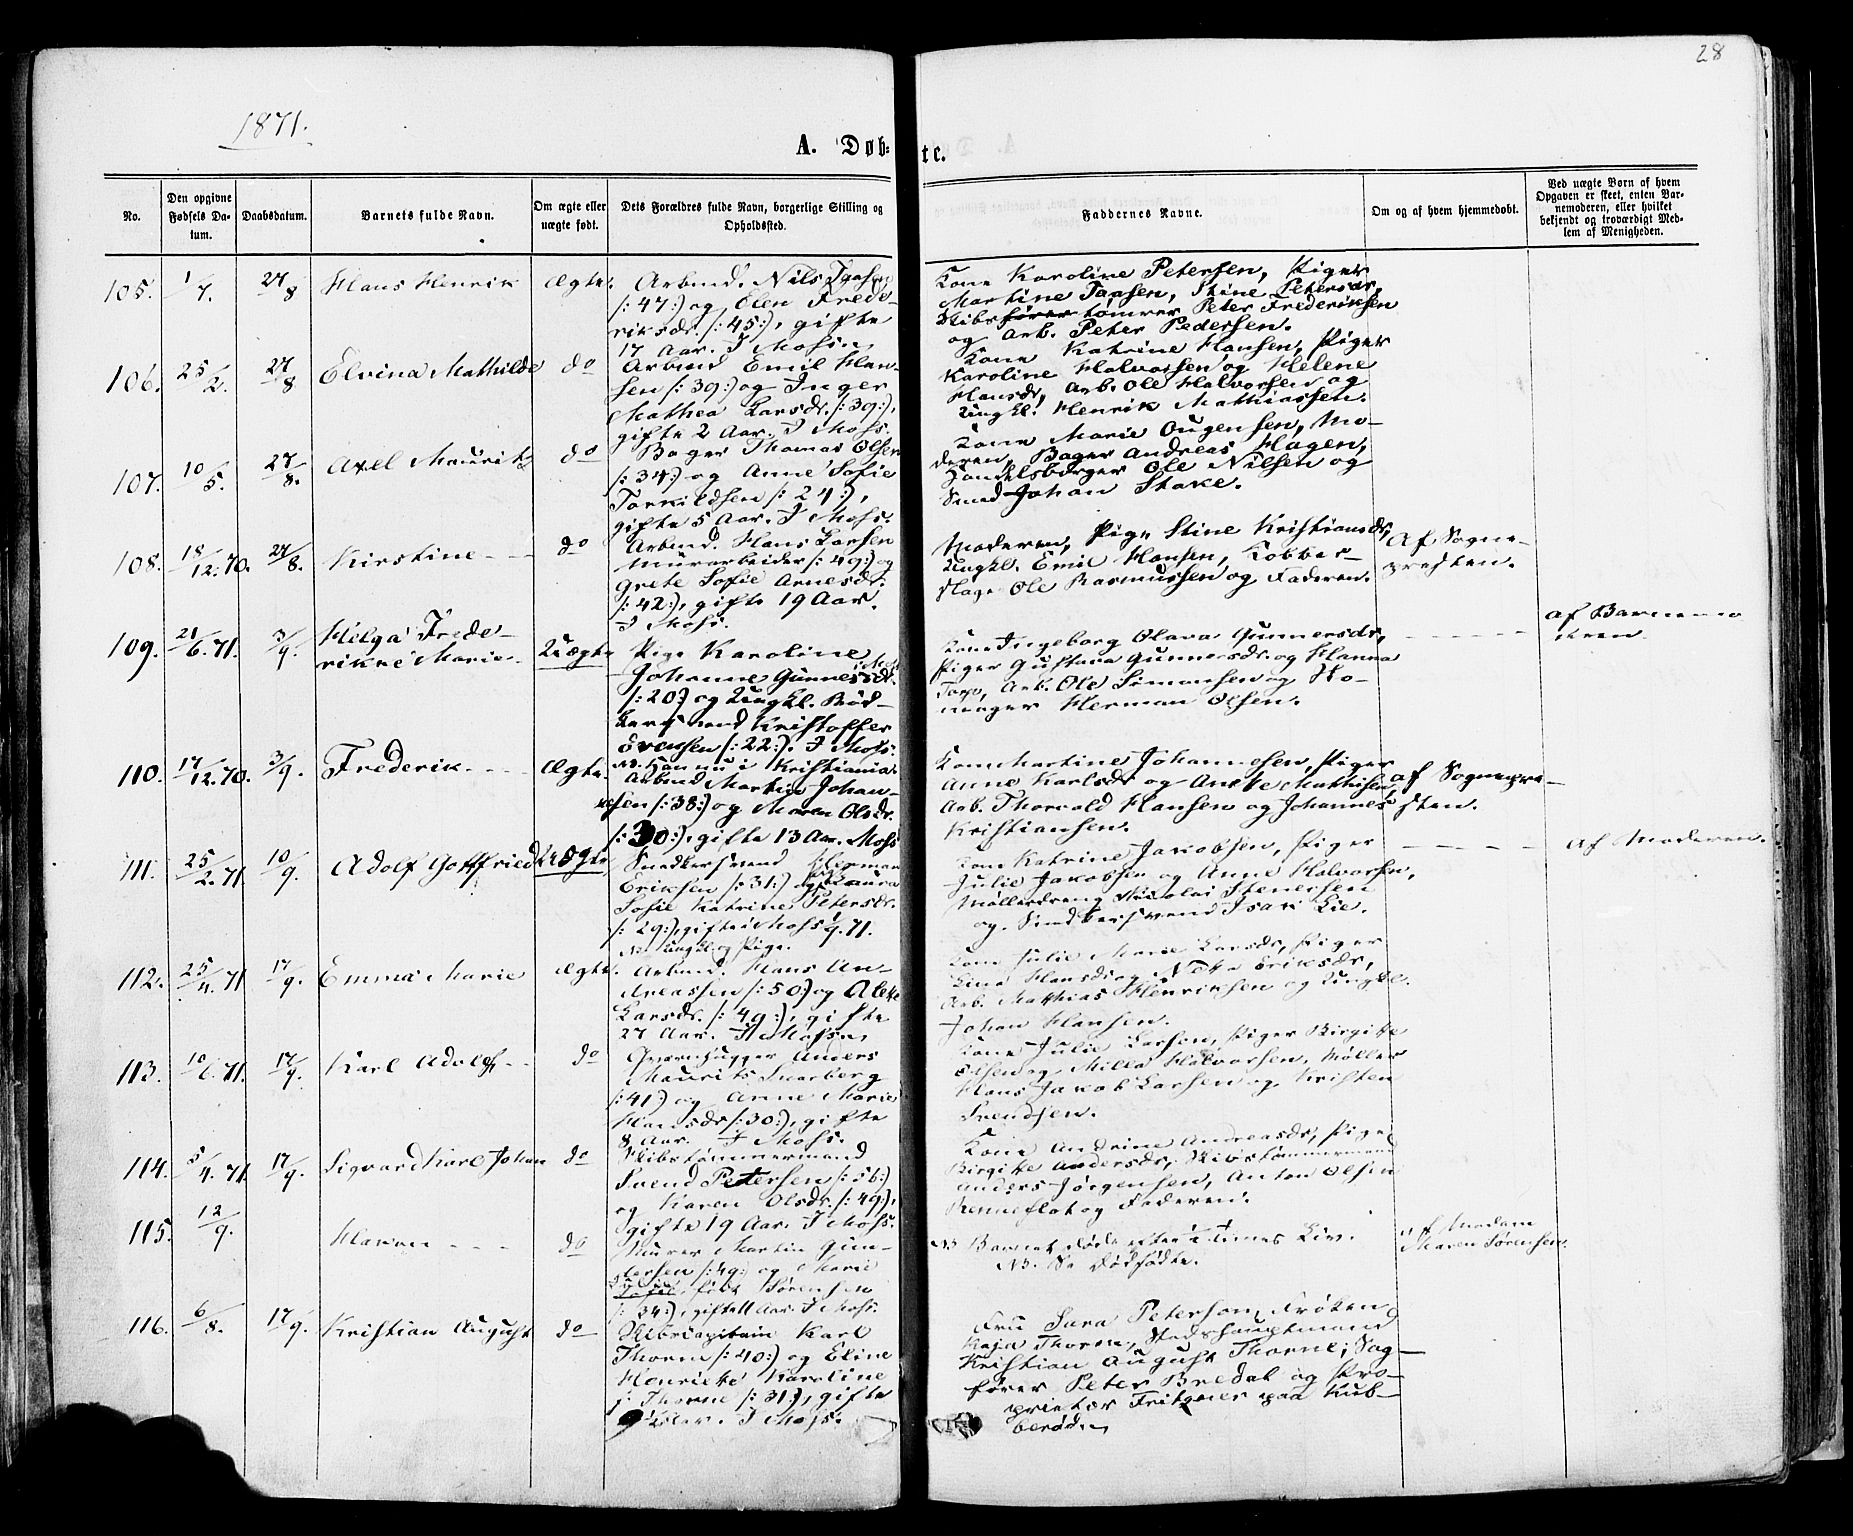 28
1871.
A. Døb-
te.
No.
Den opgivne
Fødsels Da-
tum.
Daabsdatum.
Barnets fulde Navn.
Om ægte eller
uægte født.
Dets Forældres fulde Navn, borgerlige Stilling og
Opholdssted.
Faddernes Navne.
Om og af hvem hjemmedøbt.
Ved uægte Børn af hvem
Opgaven er skeet, enten Bar-
nemoderen, eller hvilket
bekjendt og troværdigt Med-
lem af Menigheden.
105. 1/7. 27/8 Hans Henrik Ægte.
Arbmd. Nils
/:47:/ og Elen Frede-
riksdr. /:45:/, gifte
17 Aar. I Moss.
Kone Karoline Petersen, Piger
Martine Stine Petersdr,
Skibs tømrer Peter Frederiksen
og Arb. Peter Pedersen.
106. 25/2. 27/8 Elvina Mathilde do
Arbmd Emil Han-
sen /:39:/ og Inger
Mathea Larsdr. /:39:/,
gifte 2 Aar. I Moss.
Kone Katrine Hansen, Piger
Karoline Halvorsen og Helene
Hansdr, Arb. Ole Halvorsen og
Ungkl. Henrik Mathiassen.
107. 10/5. 27/8. Axel Mauritz do
Bager Thomas Olsen
/:34:/ og Anne Sofie
Torkildsen /:24:/,
gifte 5 Aar. I Moss.
Kone Marie Ougensen, Mo-
deren, Bager Andreas Hagen,
Handelsborger Ole Nilsen og
Smed Johan Stake.
108. 18/12.70. 27/8. Kirstine do
Arbmd. Hans Larsen
Murarbeider /:49:/ og
Grete Sofie Arnesdr.
/:42:/, gifte 19 Aar.
I Moss.
Moderen, Pige Stine Kristiansdr,
Ungkl. Emil Hansen, Kobber-
slager Ole Rasmussen og Faderen.
Af Sogne-
presten.
109. 21/6.71. 3/9. Helga Frede-
rikke Marie Uægte
Pige Karoline
Johanne Gunnersdr.
/:20:/ og Ungkl. Bød-
kersvend Kristoffer
Evensen /:22:/. I Moss.
NB. Han nu i Kristiania.
Kone Ingeborg Olava Gunnersdr,
Piger Gustava Gunnersdr og Hanna
Torp, Arb. Ole Simonsen og
Herman Olsen.
af Barnemo
deren.
110. 17/12.70. 3/9. Frederik Ægte.
Arbmd Martin Johan-
sen /:38:/ og Maren Olsdr.
/:30:/, gifte 13 Aar. Moss
Kone Martine Johannesen, Piger
Anne Karlsdr og Mathisen,
Arb. Thorvald Hansen og Johannes
Kristiansen.
af Sognepre-
sten.
111. 25/2.71. 10/9. Adolf Gottfried Uægte
Snedkersvend Herman
Eriksen /:31:/ og Laura
Sofie Katrine Petersdr.
/:29:/, gifte i Moss 71.
NB. Ungkl. og Pige.
Kone Katrine Jakobsen, Piger
Julie Jakobsen og Anne Halvorsen,
Møllerdreng Nicolai Stenersen
og Snedkersvend Isak Lie.
af Moderen.
112. 25/4.71 17/9. Emma Marie Ægte.
Arbmd. Hans An-
dreassen /:50:/ og Alette
Larsdr. /:49:/, gifte
27 Aar. I Moss.
Kone Julie Marie Larsdr, Piger
Lina Hansdr og Eriksdr,
Arb. Mathias Henriksen og Ungkl.
Johan Hansen.
113. 10/6.71. 17/9. Karl Adolf do
Qværnhugger Anders
Maurits
/:41:/ og Anne Marie
Hansdr /:30:/, gifte
8 Aar. I Moss.
Kone Julie Larsen, Piger Birgitte
Olsen og Milla Halvorsen, Møller
Hans Jakob Larsen og Kristen
Svendsen.
114. 5/4.71 17/9. Sigvard Karl Johan do
Skibstømmermand
Svend Petersen /:56:/
og Karen Olsdr. /:49:/,
gifte 19 Aar. I Moss.
Kone Andrine Andreasdr, Pige
Birgitte Andersdr, Skibstømmermand
Anders Jørgensen, Anton Olsen
og Faderen.
115. 12/9. do
Murer Martin Gun-
dersen /:49:/ og Marie
født Sørensen
/:34:/, gifte 11 Aar. I Moss.
NB Barnet døde efter Times Liv.
NB. Se Dødfødte.
af Madam
Maren Sørensen.
116. 6/8. 17/9. Kristian August do
Skibscapitain Karl
Thorne /:40:/ og Eline
Henriette Karoline
Thorne /:31:/, gifte
Aar. I Moss.
Fru Sara Peterson, Frøken
Kaja Thorne, Stadshauptmand
Kristian August Thorne, Sag-
fører Peter Bredal og Pro-
prietær paa Kub-
berød.